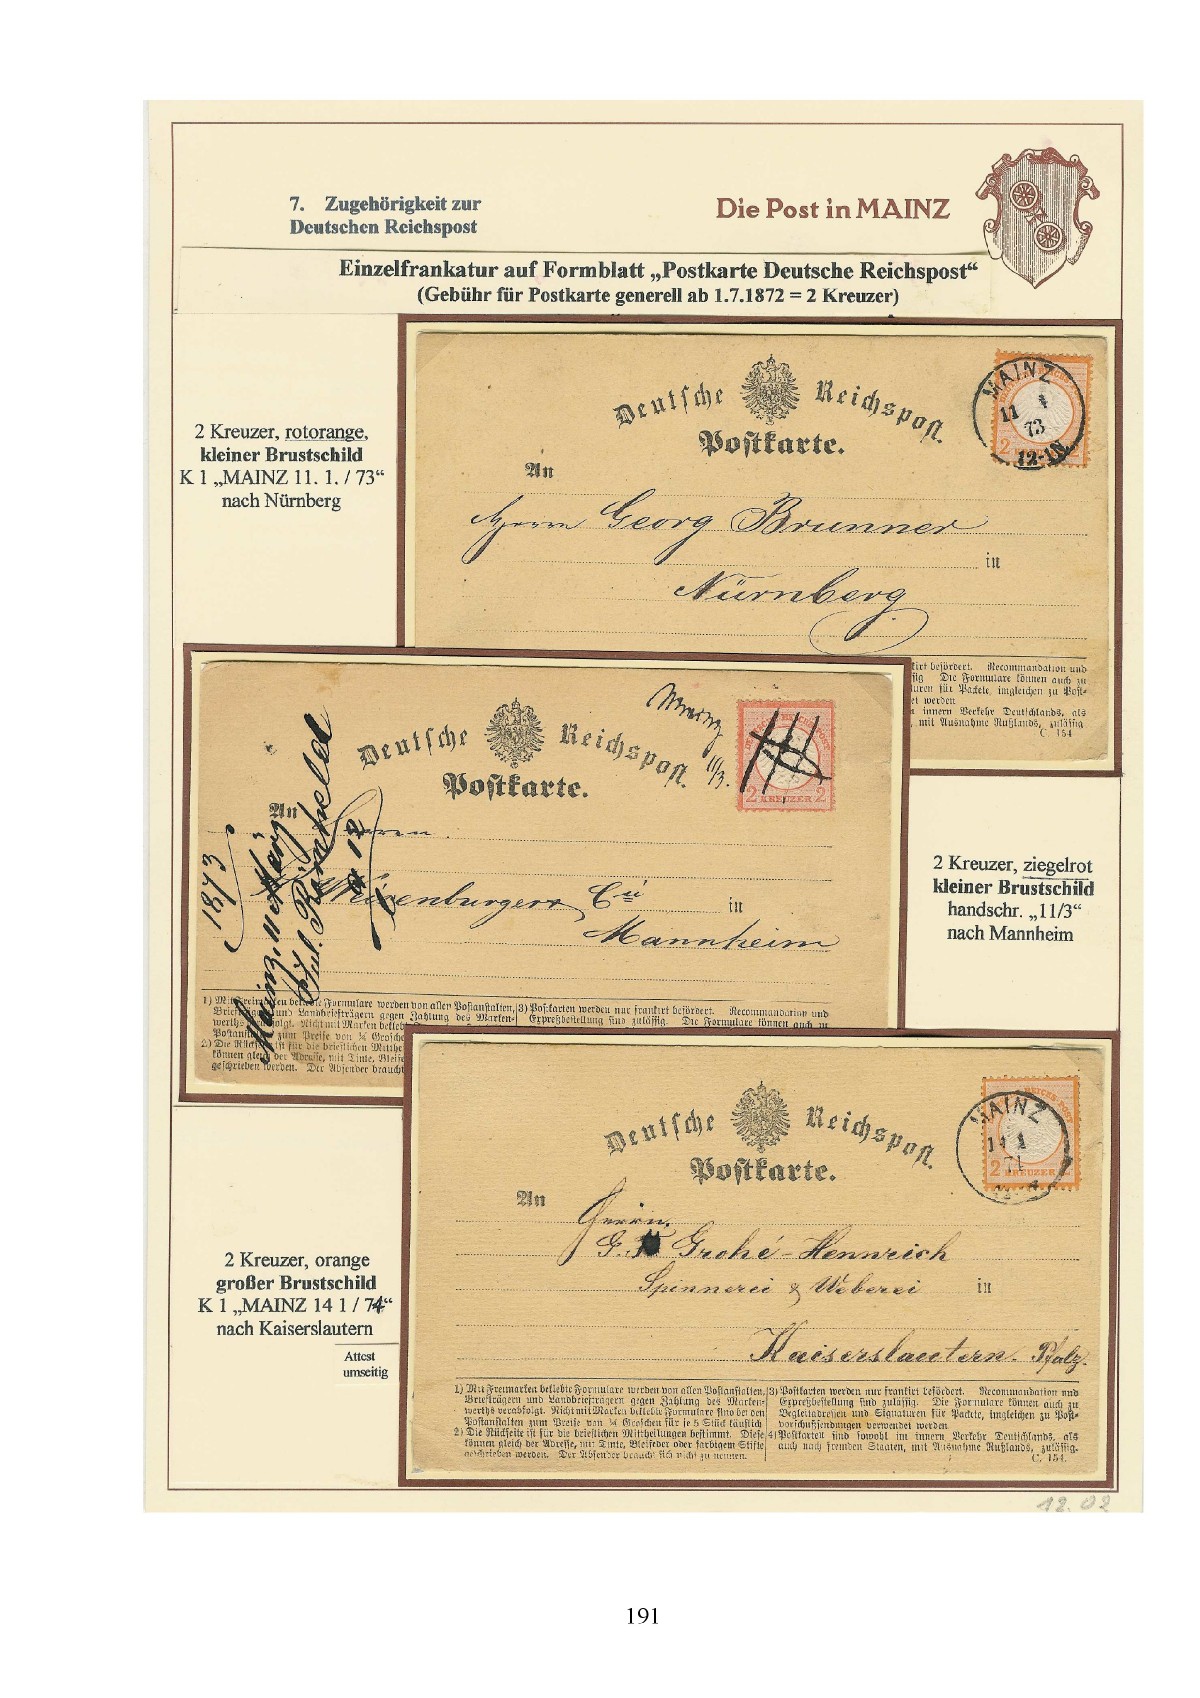 7. Zugehörigkeit zur
Deutschen Reichspost
Die Post in MAINZ
Einzelfrankatur auf Formblatt „Postkarte Deutsche Reichspost“
(Gebühr für Postkarte generell ab 1.7.1872 = 2 Kreuzer)
2 Kreuzer, rotorange,
kleiner Brustschild
K 1 „MAINZ 11. 1. / 73“
nach Nürnberg
Deutsche Reichspost.
Postkarte.
MAINZ
11 1
73
12-1N
2 2
An
Herrn Georg Brunner
in
Nürnberg
frankirt befördert. Recommandation und
Die Formulare können auch zu
für Packete, imgleichen zu Post-
werden
innern Verkehr Deutschlands, als
mit Ausnahme Rußlands, zulässig
C. 154
Deutsche Reichspost.
Postkarte.
Mainz
11/3.
2 KREUZER 2
An
Herren
Weissenburger & Cie
in
Mannheim
1873
Mainz
1) Mit Freimarken beklebte Formulare werden von allen Postanstalten,
Briefträgern und Landbriefträgern gegen Zahlung des Marken-
werths verabfolgt. Nicht mit Marken beklebte
Postanstalten zum Preise von ¼ Groschen
2) Die Rückseite ist für die brieflichen
können gleich der Adresse, mit Tinte,
geschrieben werden. Der Absender braucht
3) Postkarten werden nur frankirt befördert. Recommandation und
Expreßbestellung sind zulässig. Die Formulare können auch zu
2 Kreuzer, ziegelrot
kleiner Brustschild
handschr. „11/3“
nach Mannheim
Deutsche Reichspost.
Postkarte.
MAINZ
14 1
2 KREUZER 2
An
Herrn
Grohé-Hennrich
Spinnerei & Weberei
in
Kaiserslautern. Pfalz.
1) Mit Freimarken beklebte Formulare werden von allen Postanstalten,
Briefträgern und Landbriefträgern gegen Zahlung des Marken-
werths verabfolgt. Nicht mit Marken beklebte Formulare sind bei den
Postanstalten zum Preise von ¼ Groschen für je 5 Stück käuflich
2) Die Rückseite ist für die brieflichen Mittheilungen bestimmt. Diese
können gleich der Adresse, mit Tinte, Bleifeder oder farbigem Stifte
geschrieben werden. Der Absender braucht sich nicht zu nennen.
3) Postkarten werden nur frankirt befördert. Recommandation und
Expreßbestellung sind zulässig. Die Formulare können auch zu
Begleitadressen und Signaturen für Packete, imgleichen zu Post-
vorschußsendungen verwendet werden
4) Postkarten sind sowohl im innern Verkehr Deutschlands, als
auch nach fremden Staaten, mit Ausnahme Rußlands, zulässig.
C. 154.
2 Kreuzer, orange
großer Brustschild
K 1 „MAINZ 14 1 / 74“
nach Kaiserslautern
Attest
umseitig
12.02
191